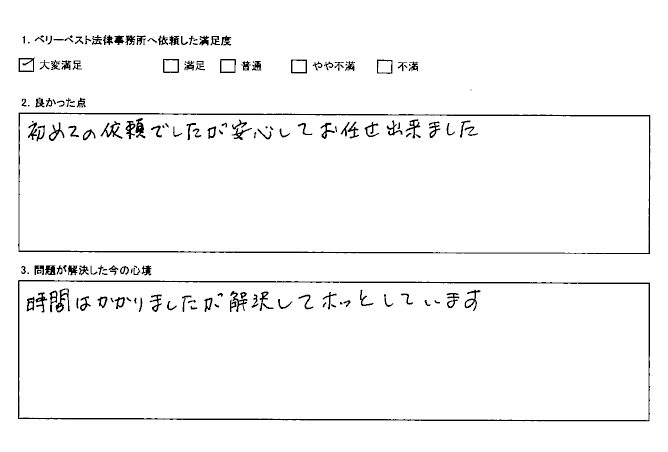 1. ベリーベスト法律事務所へ依頼した満足度
☑ 大変満足 ☐ 満足 ☐ 普通 ☐ やや不満 ☐ 不満
2. 良かった点
初めての依頼でしたが安心してお任せ出来ました
3. 問題が解決した今の心境
時間はかかりましたが解決してホッとしています